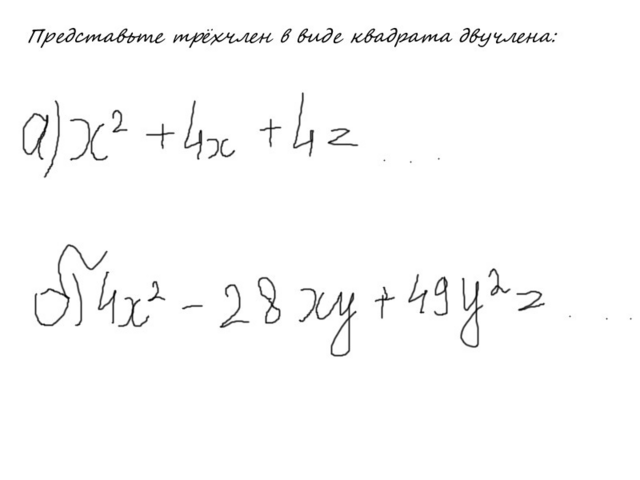 Представьте трёхчлен в виде квадрата двучлена:
а) x² + 4x + 4 = ...
б) 4x² - 28xy + 49y² = ...